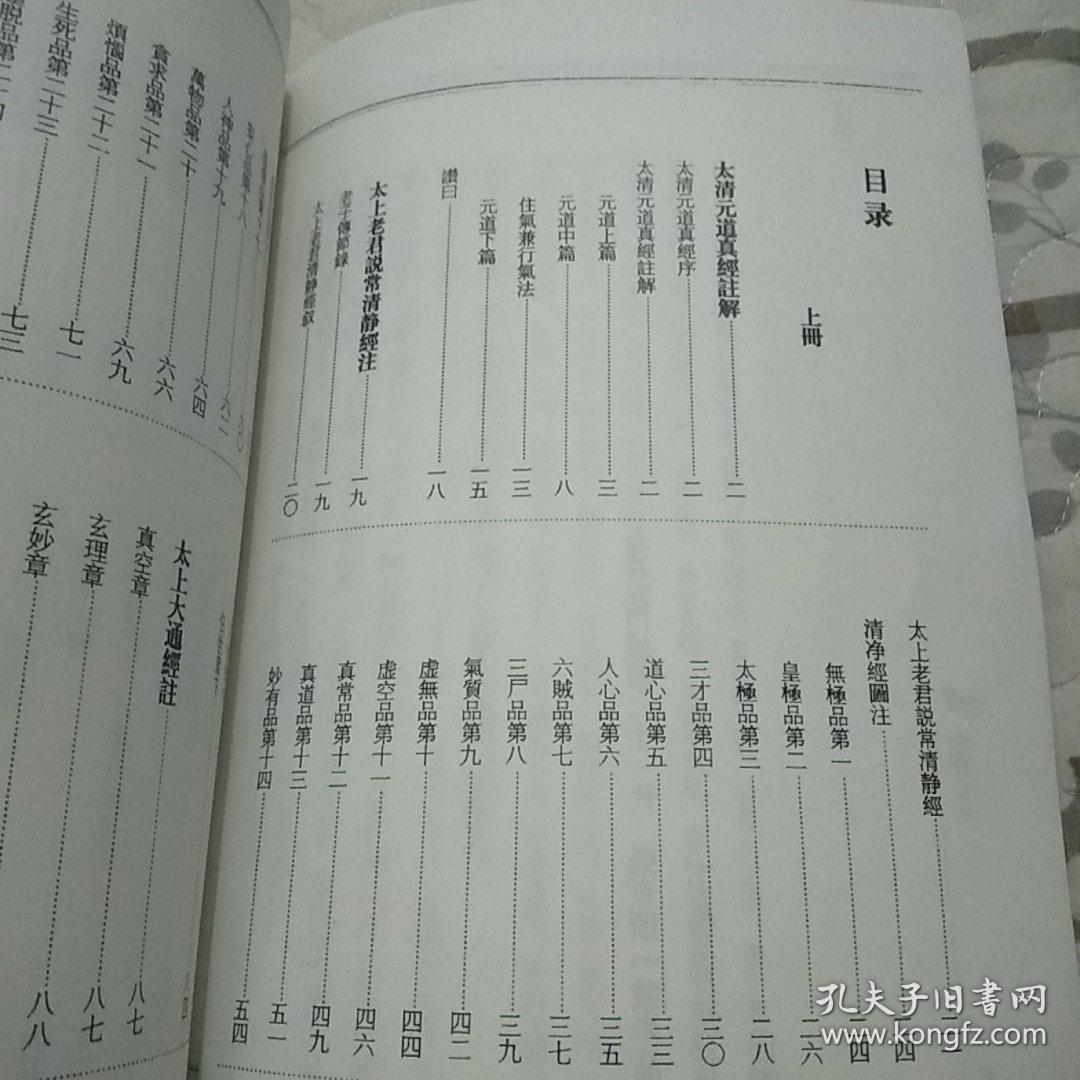 目录
上冊
太清元道真經註解 二
太清元道真經序 二
太清元道真經註解 二
元道上篇 三
元道中篇 八
住氣兼行氣法 一三
元道下篇 一五
讃曰 一八
太上老君説常清静經注 一九
老子傳節錄 一九
太上老君清静經叙 二〇
太上老君説常清静經
清净經圖注
無極品第一
皇極品第二 二六
太極品第三 二八
三才品第四 三〇
道心品第五 三三
人心品第六 三五
六賊品第七 三七
三尸品第八 三九
氣質品第九 四二
虚無品第十 四四
虚空品第十一 四六
真常品第十二 四九
真道品第十三 五一
妙有品第十四 五四
人神品第十九 六二
萬物品第二十 六四
貪求品第二十一 六六
煩惱品第二十二 六九
生死品第二十三 七一
脱品第二十四 七三
太上大通經註
真空章 八七
玄理章 八七
玄妙章 八八
孔夫子旧書网
www.kongfz.com